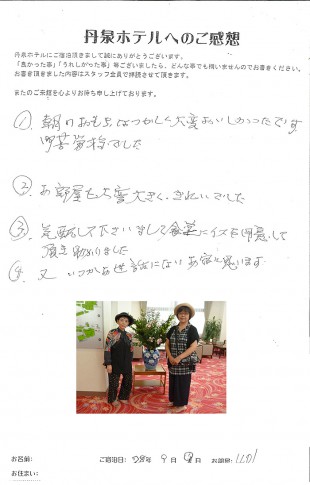 丹泉ホテルへのご感想
丹泉ホテルにご宿泊頂きまして誠にありがとうございます。
「良かった事」「うれしかった事」等ございましたら、どんな事でも伺いませんのでお書きください。
お書き頂きました内容はスタッフ全員で拝読させて頂きます。
またのご来館を心よりお待ち申し上げております。
① 朝のおもちなつかしく大変おいしかったです
でした
② お部屋も大変大きく、きれいでした
③ 気配して下さいまして食事にイスを用意して
頂き助かりました
④ 又、いつかお世話になりたいお宿と思います
お名前:
ご宿泊日: 28年 9月 9日 お部屋: 1101
お住まい: